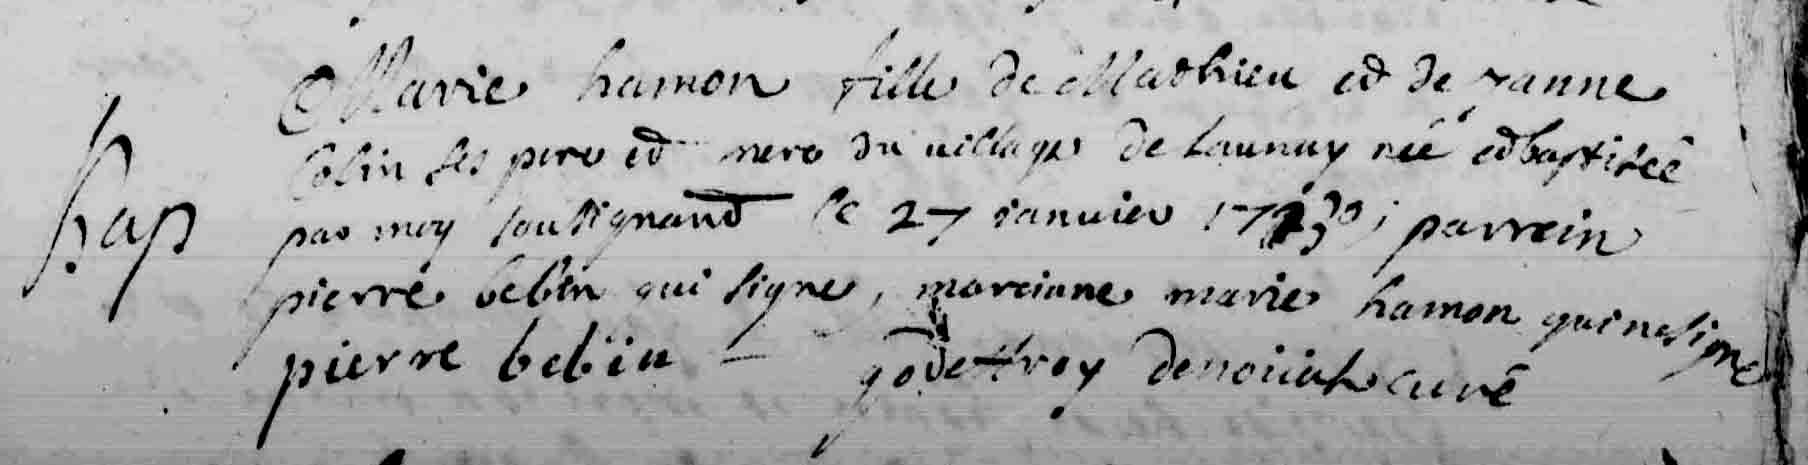 Marie hamon fille de Mathieu et de janne
Colin ses pere et mere du village de Launay née et baptiseé
bap par moy sousignant le 27 janvier 1730, parrein
pierre bebin qui signe, mareinne marie hamon qui ne signe
pierre bebin godeffroy curé